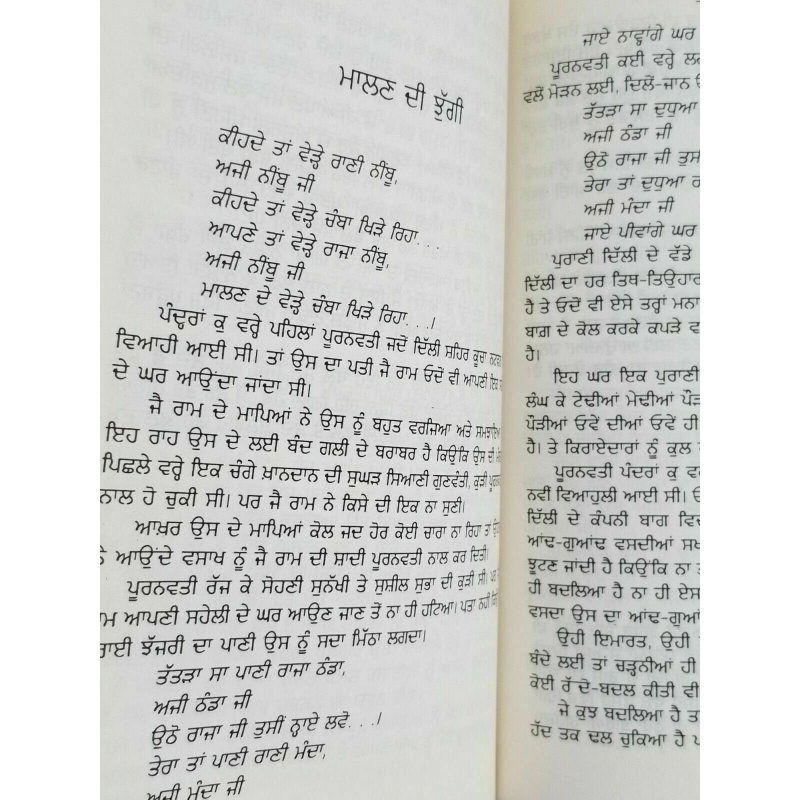 ਮਾਲਣ ਦੀ ਝੁੱਗੀ
ਕੀਹਦੇ ਤਾਂ ਵੇੜ੍ਹੇ ਰਾਣੀ ਨੀਂਬੂ,
ਅਜੀ ਨੀਂਬੂ ਜੀ
ਕੀਹਦੇ ਤਾਂ ਵੇੜ੍ਹੇ ਚੰਬਾ ਖਿੜੇ ਰਿਹਾ. . .
ਆਪਣੇ ਤਾਂ ਵੇੜ੍ਹੇ ਰਾਜਾ ਨੀਂਬੂ,
ਅਜੀ ਨੀਂਬੂ ਜੀ
ਮਾਲਣ ਦੇ ਵੇੜ੍ਹੇ ਚੰਬਾ ਖਿੜੇ ਰਿਹਾ. . .।
ਪੰਦ੍ਹਰਾਂ ਕੁ ਵਰ੍ਹੇ ਪਹਿਲਾਂ ਪੂਰਨਵਤੀ ਜਦੋਂ ਦਿੱਲੀ ਸ਼ਹਿਰ ਕੂਚਾ
ਵਿਆਹੀ ਆਈ ਸੀ। ਤਾਂ ਉਸ ਦਾ ਪਤੀ ਜੈ ਰਾਮ ਓਦੋਂ ਵੀ ਆਪਣੀ ਇਕ
ਦੇ ਘਰ ਆਉਂਦਾ ਜਾਂਦਾ ਸੀ।
ਜੈ ਰਾਮ ਦੇ ਮਾਪਿਆਂ ਨੇ ਉਸ ਨੂੰ ਬਹੁਤ ਵਰਜਿਆ ਅਤੇ ਸਮਝਾਇਆ
ਇਹ ਰਾਹ ਉਸ ਦੇ ਲਈ ਬੰਦ ਗਲੀ ਦੇ ਬਰਾਬਰ ਹੈ ਕਿਉਂਕਿ ਉਸ ਦੀ
ਪਿਛਲੇ ਵਰ੍ਹੇ ਇਕ ਚੰਗੇ ਖ਼ਾਨਦਾਨ ਦੀ ਸੁਘੜ ਸਿਆਣੀ ਗੁਣਵੰਤੀ, ਕੁੜੀ
ਨਾਲ ਹੋ ਚੁਕੀ ਸੀ। ਪਰ ਜੈ ਰਾਮ ਨੇ ਕਿਸੇ ਦੀ ਇਕ ਨਾ ਸੁਣੀ।
ਆਖ਼ਰ ਉਸ ਦੇ ਮਾਪਿਆਂ ਕੋਲ ਜਦ ਹੋਰ ਕੋਈ ਚਾਰਾ ਨਾ ਰਿਹਾ ਤਾਂ
ਆਉਂਦੇ ਵਸਾਖ ਨੂੰ ਜੈ ਰਾਮ ਦੀ ਸ਼ਾਦੀ ਪੂਰਨਵਤੀ ਨਾਲ ਕਰ ਦਿਤੀ।
ਪੂਰਨਵਤੀ ਰੱਜ ਕੇ ਸੋਹਣੀ ਸੁਨੱਖੀ ਤੇ ਸੁਸ਼ੀਲ ਸੁਭਾ ਦੀ ਕੁੜੀ ਸੀ।
ਆਪਣੀ ਸਹੇਲੀ ਦੇ ਘਰ ਆਉਣ ਜਾਣ ਤੋਂ ਨਾ ਹੀ ਹਟਿਆ। ਪਤਾ ਨਹੀਂ
ਝੱਜਰੀ ਦਾ ਪਾਣੀ ਉਸ ਨੂੰ ਸਦਾ ਮਿੱਠਾ ਲਗਦਾ।
ਤੱਤੜਾ ਸਾ ਪਾਣੀ ਰਾਜਾ ਠੰਡਾ,
ਅਜੀ ਠੰਡਾ ਜੀ
ਉਠੋ ਰਾਜਾ ਜੀ ਤੁਸੀਂ ਨ੍ਹਾਏ ਲਵੋ. . .।
ਤੇਰਾ ਤਾਂ ਪਾਣੀ ਰਾਣੀ ਮੰਦਾ,
ਅਜੀ ਮੰਦਾ ਜੀ
ਜਾਏ ਨਾਵ੍ਹਾਂਗੇ ਘਰ
ਪੂਰਨਵਤੀ ਕਈ ਵਰ੍ਹੇ
ਵਲੋਂ ਮੋੜਨ ਲਈ, ਦਿਲੋਂ-ਜਾਨ
ਤੱਤੜਾ ਸਾ ਦੁਧੁਆ
ਅਜੀ ਠੰਡਾ ਜੀ
ਉਠੋ ਰਾਜਾ ਜੀ
ਤੇਰਾ ਤਾਂ ਦੁਧੁਆ
ਅਜੀ ਮੰਦਾ ਜੀ
ਜਾਏ ਪੀਵਾਂਗੇ ਘਰ
ਪੁਰਾਣੀ ਦਿੱਲੀ ਦੇ ਵੱਡੇ
ਦਿੱਲੀ ਦਾ ਹਰ ਤਿਥ-ਤਿਉਹਾਰ
ਹੈ ਤੇ ਓਦੋਂ ਵੀ ਏਸੇ ਤਰ੍ਹਾਂ
ਬਾਗ਼ ਦੇ ਕੋਲ ਕਰਕੇ ਕਪੜੇ
ਹੈ।
ਇਹ ਘਰ ਇਕ ਪੁਰਾਣੀ
ਲੰਘ ਕੇ ਟੇਢੀਆਂ ਮੇਢੀਆਂ
ਪੌੜੀਆਂ ਓਵੇਂ ਦੀਆਂ ਓਵੇਂ ਹੀ
ਹੈ। ਤੇ ਕਿਰਾਏਦਾਰਾਂ ਨੂੰ ਕੁਲ
ਪੂਰਨਵਤੀ ਪੰਦਰਾਂ ਕੁ
ਨਵੀਂ ਵਿਆਹੁਲੀ ਆਈ ਸੀ।
ਦਿੱਲੀ ਦੇ ਕੰਪਨੀ ਬਾਗ
ਆਂਢ-ਗੁਆਂਢ ਵਸਦੀਆਂ
ਝੂਟਣ ਜਾਂਦੀ ਹੈ ਕਿਉਂਕਿ ਨਾ
ਹੀ ਬਦਲਿਆ ਹੈ ਨਾ ਹੀ ਏਸ
ਵਸਦਾ ਉਸ ਦਾ ਆਂਢ-ਗੁਆਂ
ਉਹੀ ਇਮਾਰਤ, ਉਹੀ
ਬੰਦੇ ਲਈ ਤਾਂ ਚੜ੍ਹਨੀਆਂ ਹੀ
ਕੋਈ ਰੱਦੋ-ਬਦਲ ਕੀਤੀ ਵੀ
ਜੇ ਕੁਝ ਬਦਲਿਆ ਹੈ
ਹੱਦ ਤਕ ਢਲ ਚੁਕਿਆ ਹੈ